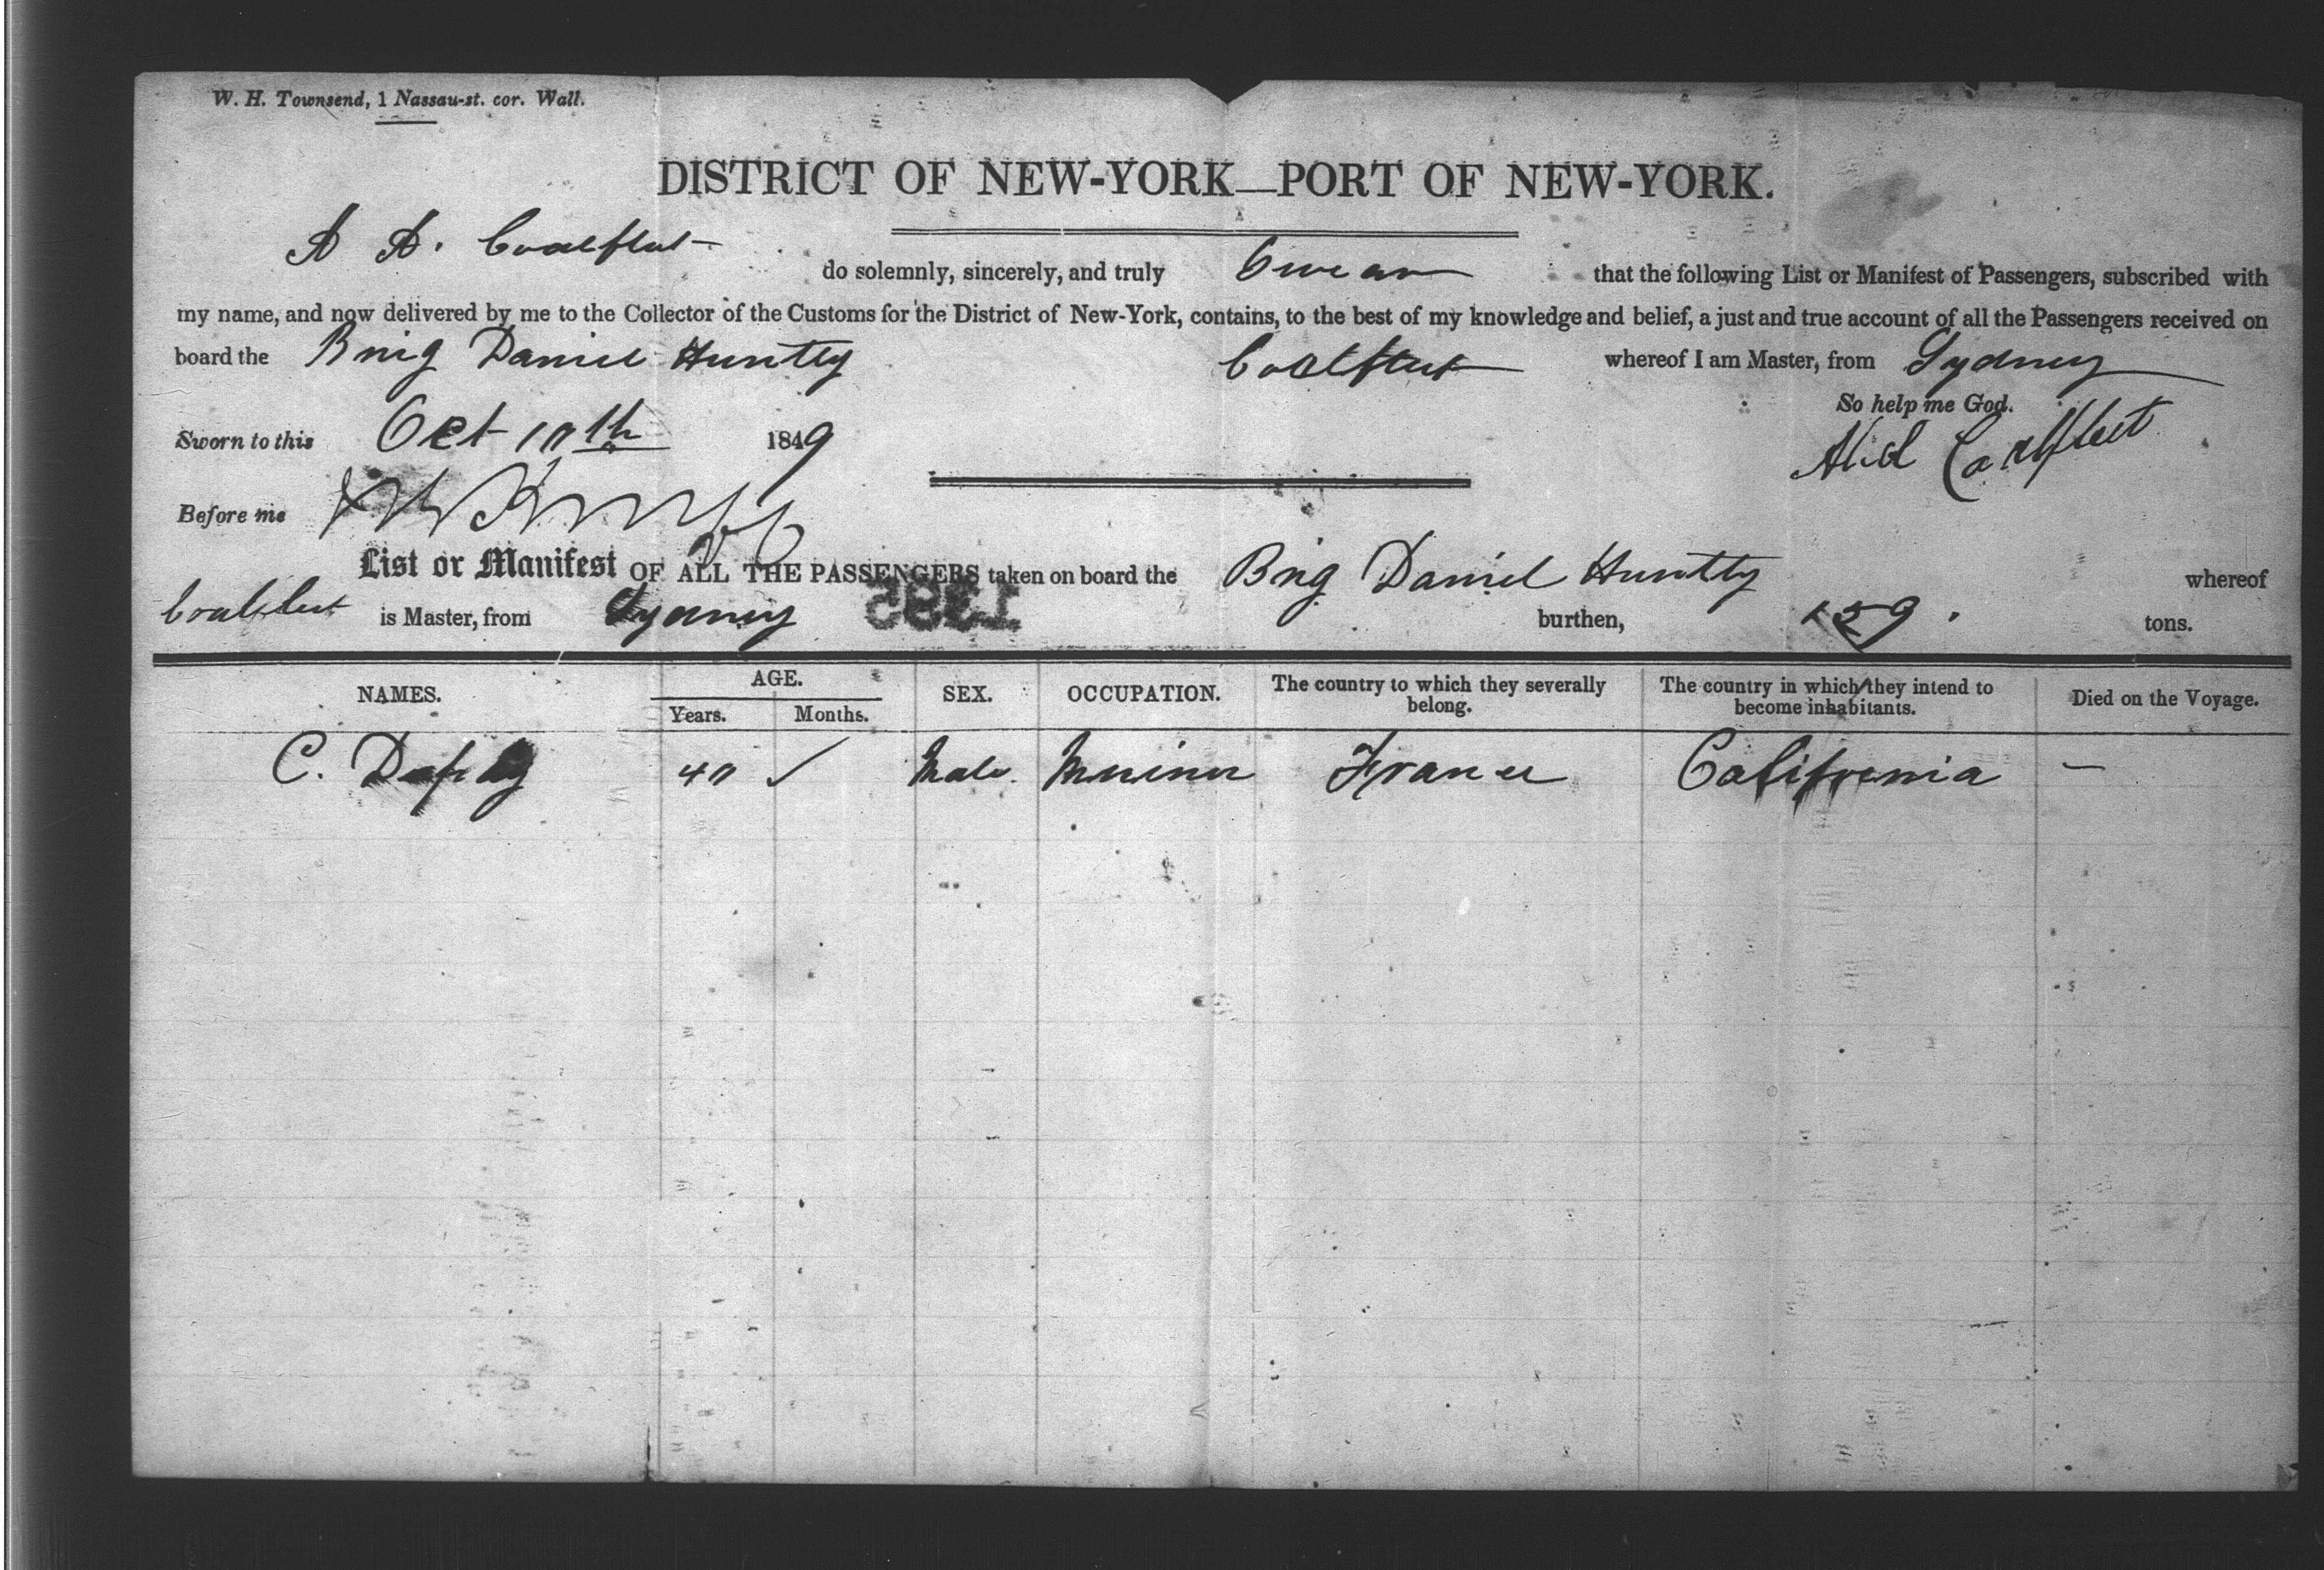 W. H. Townsend, 1 Nassau-st. cor. Wall.
DISTRICT OF NEW-YORK—PORT OF NEW-YORK.
A A. Coalfleet do solemnly, sincerely, and truly Swear that the following List or Manifest of Passengers, subscribed with
my name, and now delivered by me to the Collector of the Customs for the District of New-York, contains, to the best of my knowledge and belief, a just and true account of all the Passengers received on
board the Brig Daniel Huntly Coalfleet whereof I am Master, from Sydney
So help me God.
Sworn to this Oct th 1849
Coalfleet
Before me
List or Manifest OF ALL THE PASSENGERS taken on board the Brig Daniel Huntly whereof
Coalfleet is Master, from Sydney burthen, 159 tons.
1385
NAMES. AGE. SEX. OCCUPATION. The country to which they severally belong. The country in which they intend to become inhabitants. Died on the Voyage.
Years. Months.
C. Male France California —